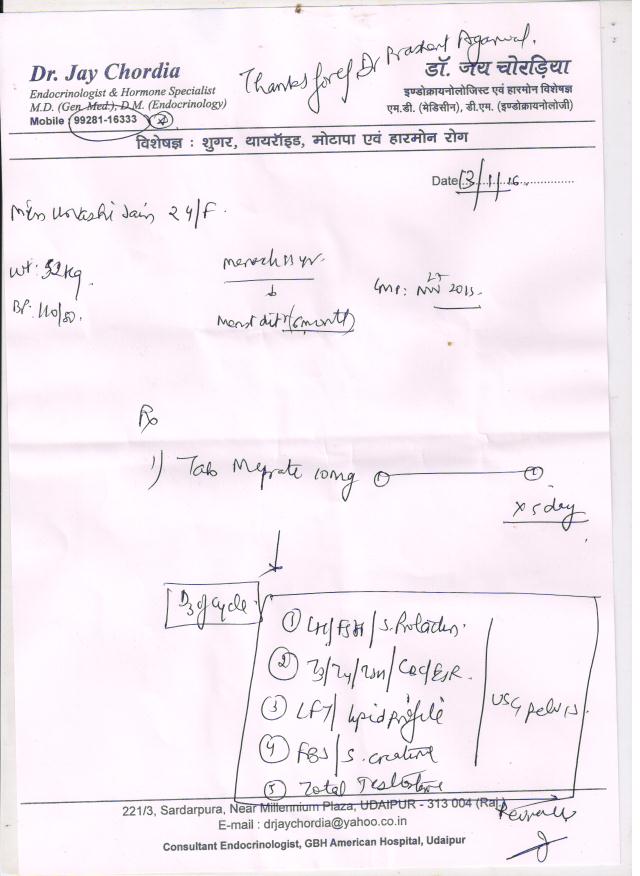 Thanks for ref Dr Prashant Agarwal.
Dr. Jay Chordia
Endocrinologist & Hormone Specialist
M.D. (Gen. Med.), D.M. (Endocrinology)
Mobile : 99281-16333
डॉ. जय चोरड़िया
इण्डोक्रायनोलोजिस्ट एवं हारमोन विशेषज्ञ
एम.डी. (मेडिसीन), डी.एम. (इण्डोक्रायनोलोजी)
विशेषज्ञ : शुगर, थायरॉइड, मोटापा एवं हारमोन रोग
Date 13/1/16
Jain 24/F.
Wt: 52kg.
BP: 110/80.
menarch 11 yr.
LMP: Nov 2015.
Rx
1) Tab Meprate 10mg 1 1
x 5 day
D3 of cycle
1 LH/FSH/S. Prolactin.
2 T3/T4/TSH/CBC/ESR.
3 LFT/lipid profile
4 FBS/S. creatine
5 Total Testosterone
USG pelvis.
221/3, Sardarpura, Near Millennium Plaza, UDAIPUR - 313 004 (Raj.)
E-mail : drjaychordia@yahoo.co.in
Consultant Endocrinologist, GBH American Hospital, Udaipur